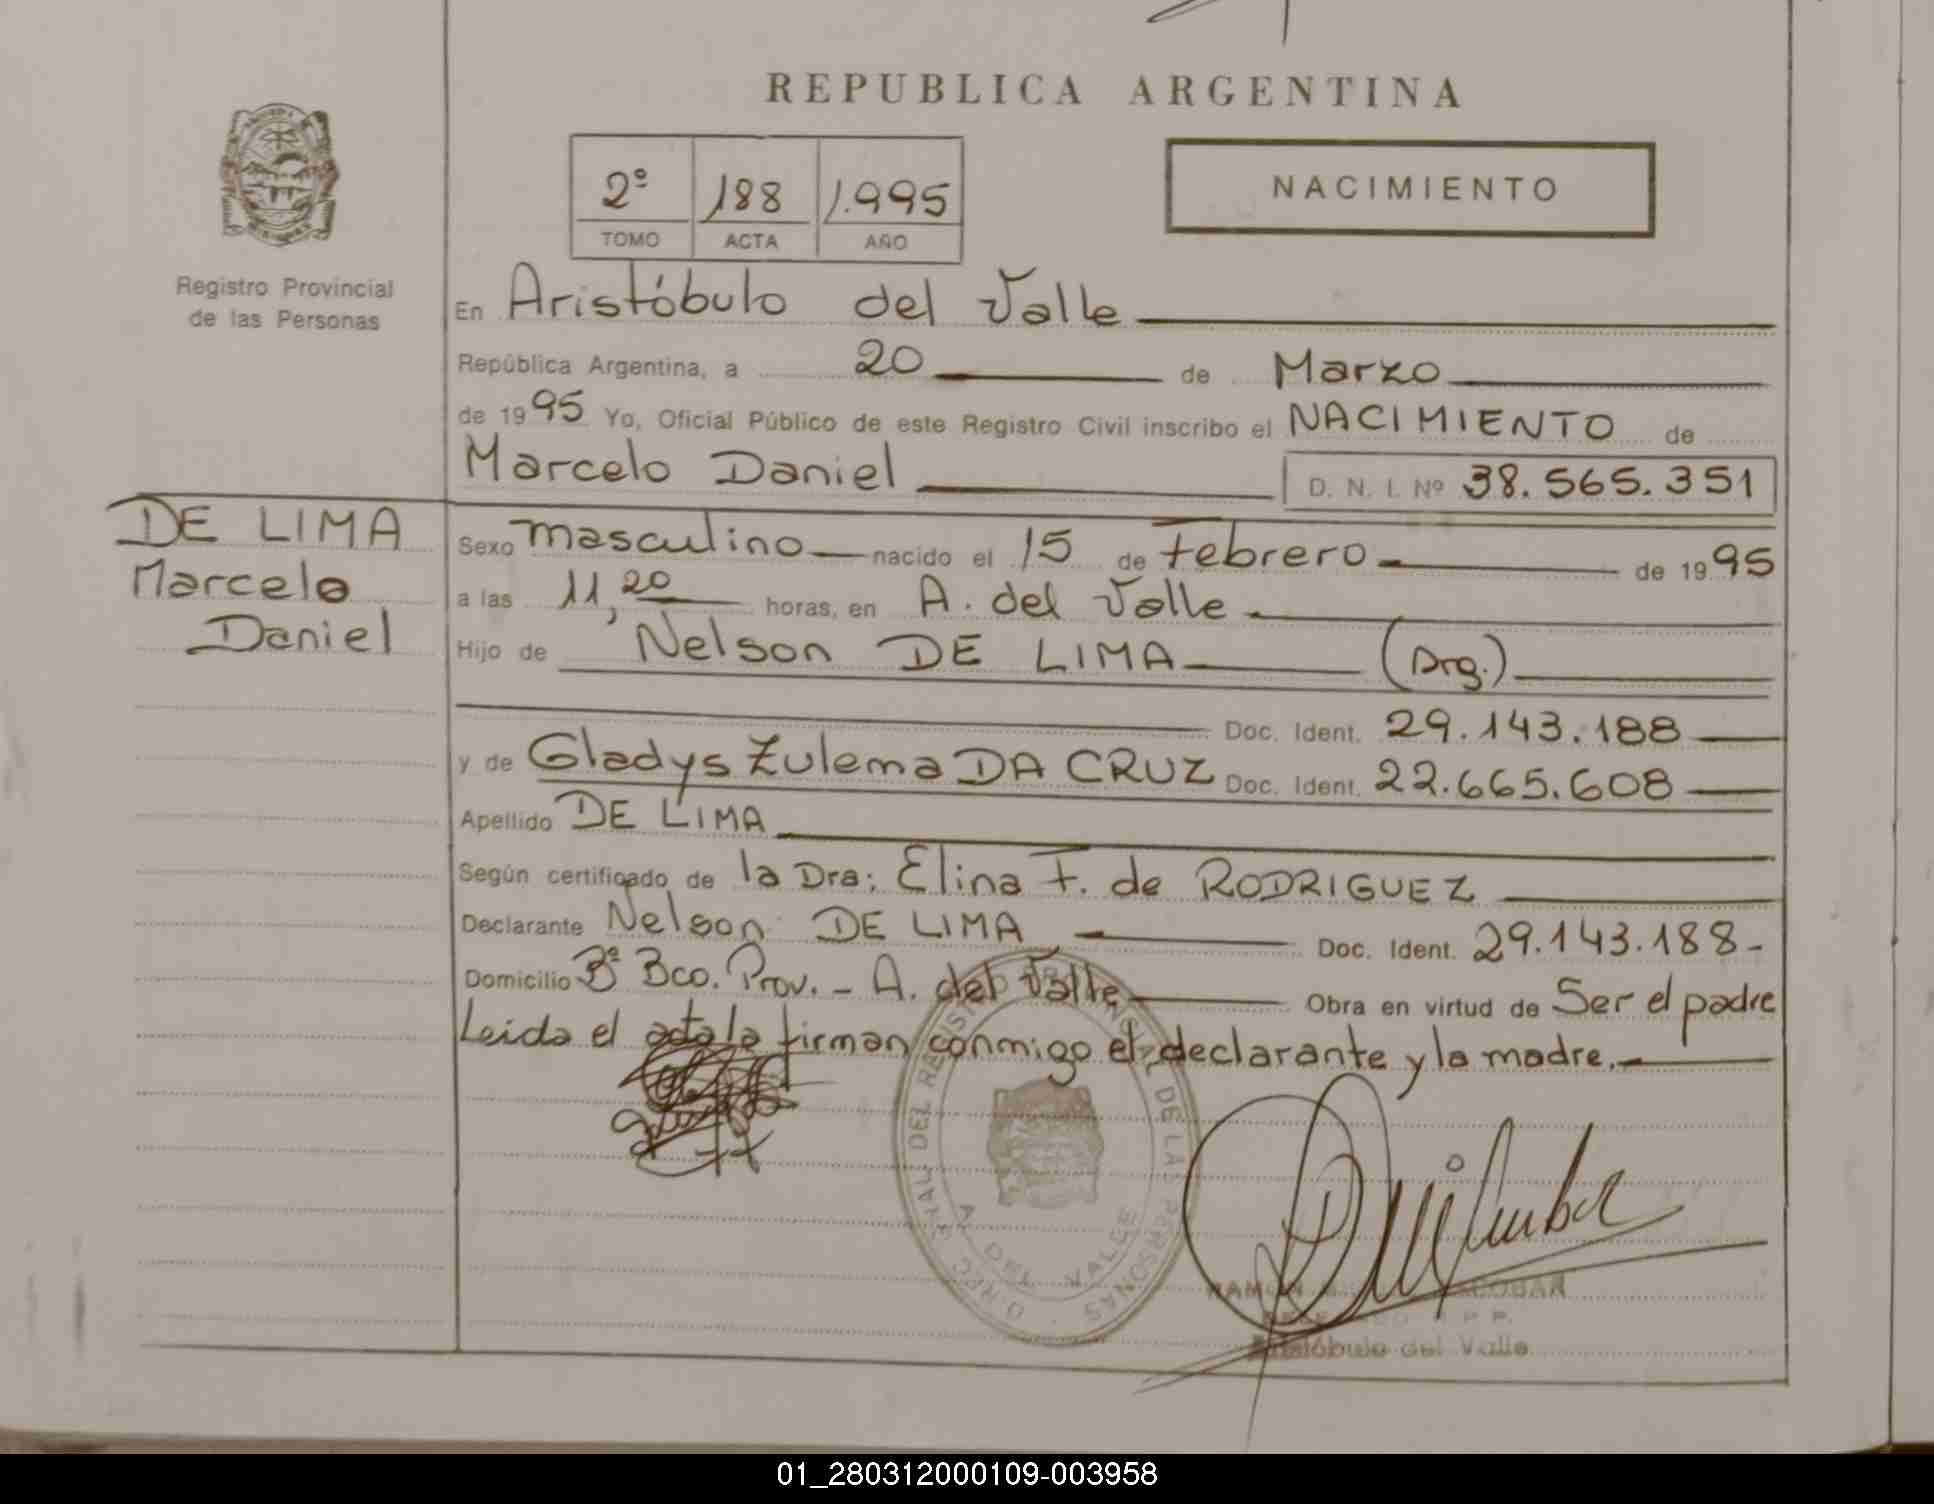 REPUBLICA ARGENTINA
2º 188 1.995
TOMO ACTA AÑO
NACIMIENTO
Registro Provincial
de las Personas
En Aristóbulo del Valle
República Argentina, a 20 de Marzo
de 1995 Yo, Oficial Público de este Registro Civil inscribo el NACIMIENTO de
Marcelo Daniel D. N. I. Nº 38.565.351
DE LIMA
Marcelo
Daniel
Sexo masculino nacido el 15 de Febrero de 1995
a las 11,20 horas, en A. del Valle
Hijo de Nelson DE LIMA (Arg.)
Doc. Ident. 29.143.188
y de Gladys Zulema DA CRUZ Doc. Ident. 22.665.608
Apellido DE LIMA
Según certificado de la Dra: Elina F. de RODRIGUEZ
Declarante Nelson DE LIMA Doc. Ident. 29.143.188-
Domicilio Bº Bco. Prov. - A. del Valle Obra en virtud de Ser el padre
Leida el acta la firman conmigo el declarante y la madre.-
DEL REGISTRO DE LAS PERSONAS
A. DEL VALLE
RAMON
Aristóbulo del Valle
01_280312000109-003958